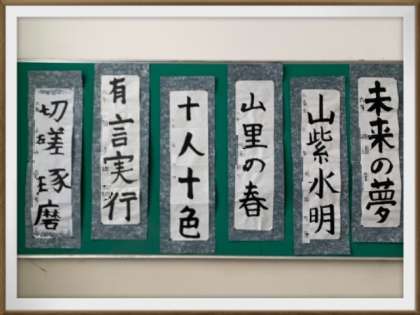 未来の夢
山紫水明
山里の春
十人十色
有言実行
切磋琢磨